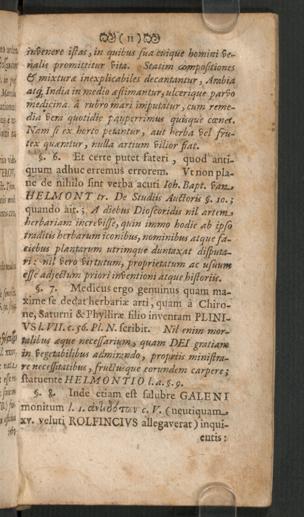 ( 11 )
invenere istas, in quibus sua cuique homini ve-
nalis promittitur vita. Statim compositiones
& mixturæ inexplicabiles decantantur, Arabia
atq; India in medio æstimantur, ulcerique parvo
medicina à rubro mari imputatur, cum reme-
dia vera quotidie pauperrimus quisque cœnet.
Nam si ex horto petantur, aut herba vel fru-
tex quæratur, nulla artium vilior fiat.
§. 6. Et certe putet fateri, quod anti-
quum adhuc erremus errorem. Ut non pla-
ne de nihilo sint verba acuti Joh. Bapt. van
HELMONT tr. De Studiis Auctoris §. 10.;
quando ait; A diebus Dioscoridis nil artem
herbariam increvisse, quin immo hodie ab ipso
traditis herbarum iconibus, nominibus atque fa-
ciebus plantarum utrimque duntaxat disputa-
ri: nil vero virtutum, proprietatum ac usuum
esse adjectum priori inventioni atque historiis.
§. 7. Medicus ergo genuinus quam ma-
xime se dedat herbariæ arti, quam à Chiro-
ne, Saturni & Phylliræ filio inventam PLINI-
VS L. VII. c. 56. Pl. N. scribit. Nil enim mor-
talibus æque necessarium, quam DEI gratiam
in vegetabilibus admirando, propriis ministra-
re necessitatibus, fructusque eorundem carpere;
statuente HELMONTIO l. a. §. 9.
§. 8. Inde etiam est salubre GALENI
monitum l. 1. ἀντιδότων c. V. (neutiquam
xv. veluti ROLFINCIVS allegaverat) inqui-
entis: